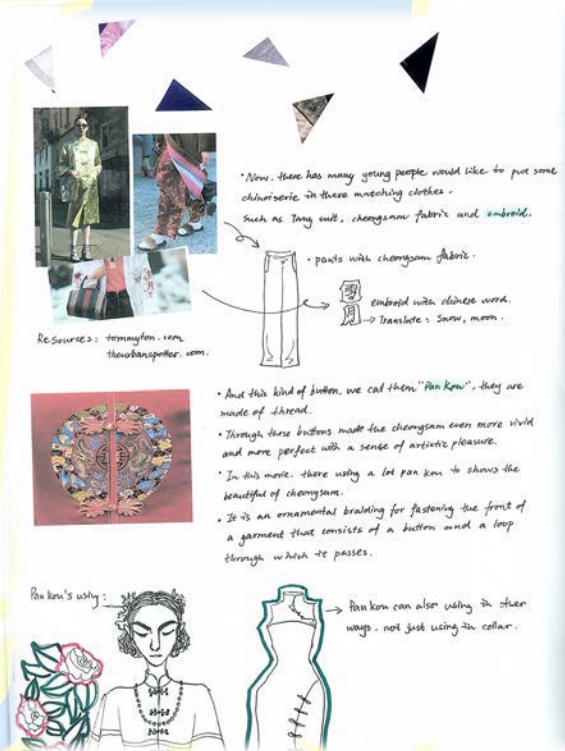 • Now. there has many young people would like to put some
chinoiserie in there matching clothes.
such as Tang suit, cheongsam fabric and embroid.
• pants with cheongsam fabric.
雪
月
embroid with chinese word.
→ Translate: Snow, moon.
Resources: tommyton.com
theurbanspotter.com.
• And this kind of button. we call them "Pan Kou", they are
made of thread.
• Through these buttons made the cheongsam even more vivid
and more perfect with a sense of artistic pleasure.
• In this movie. there using a lot pan kou to shows the
beautiful of cheongsam.
• It is an ornamental braiding for fastening the front of
a garment that consists of a button and a loop
through which it passes.
Pan kou's using:
→ Pan kou can also using in other
ways. not just using in collar.